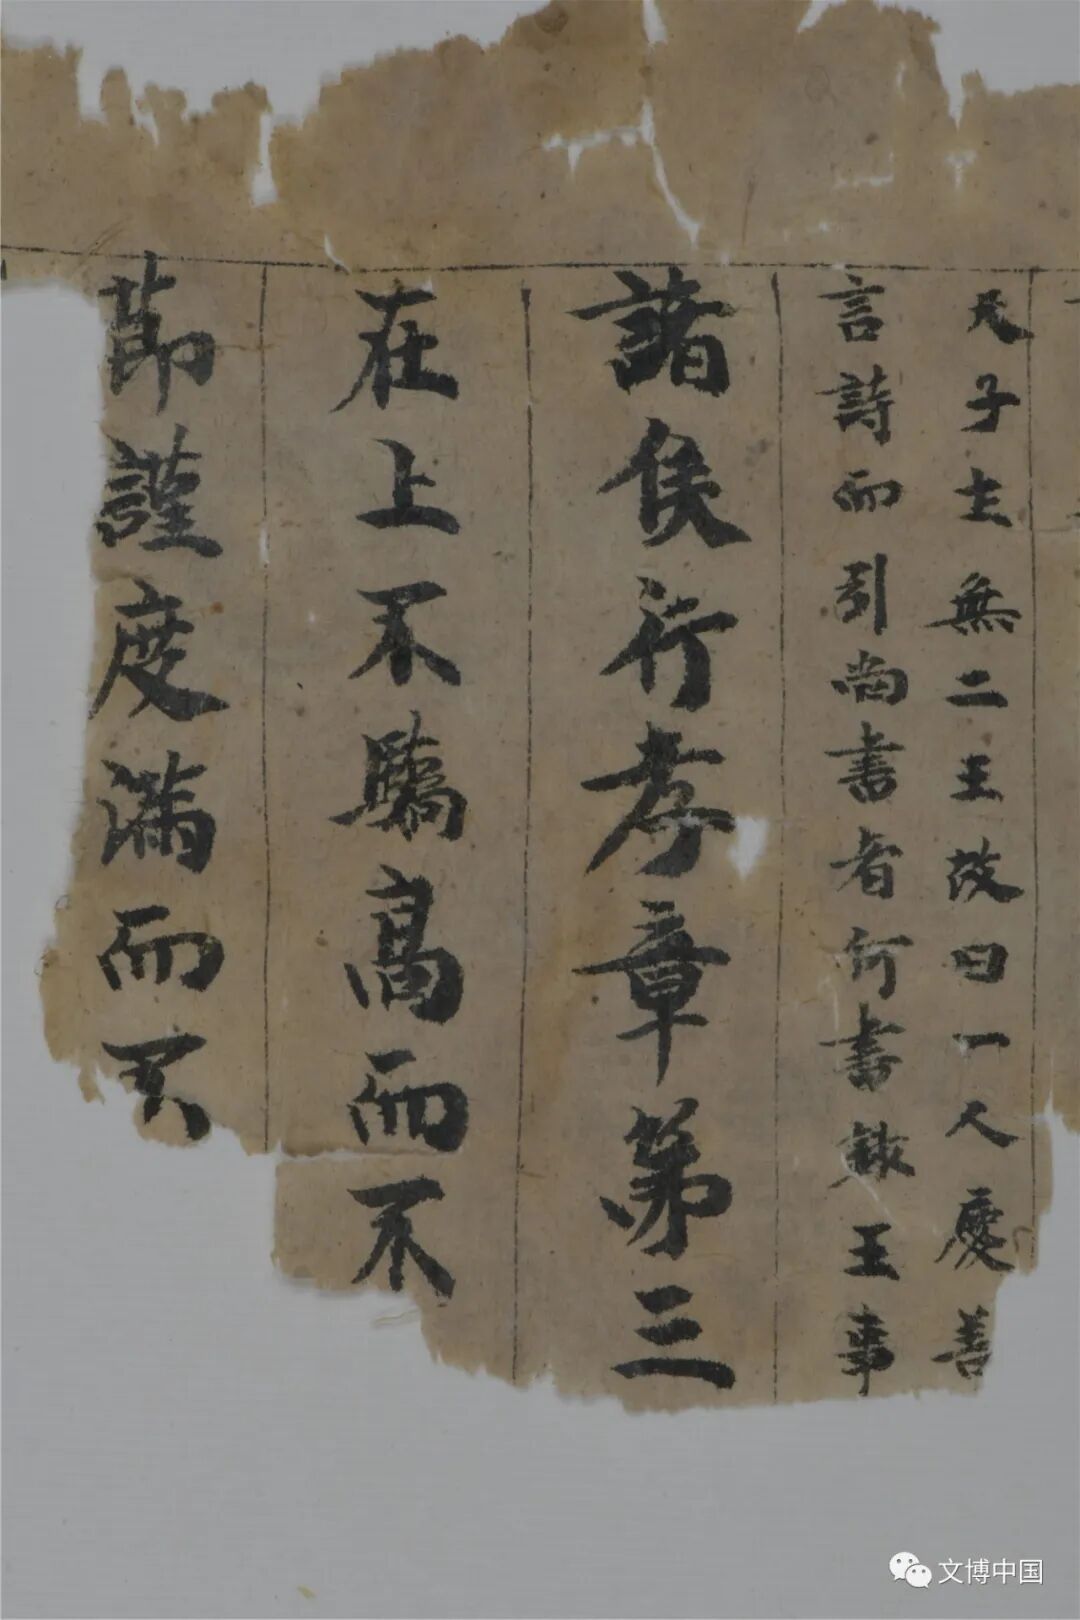 天子主無二王故曰一人慶善
言詩而引尚書者何書録王事
諸侯行孝章第三
在上不驕高而不
節謹度滿而不
文博中国